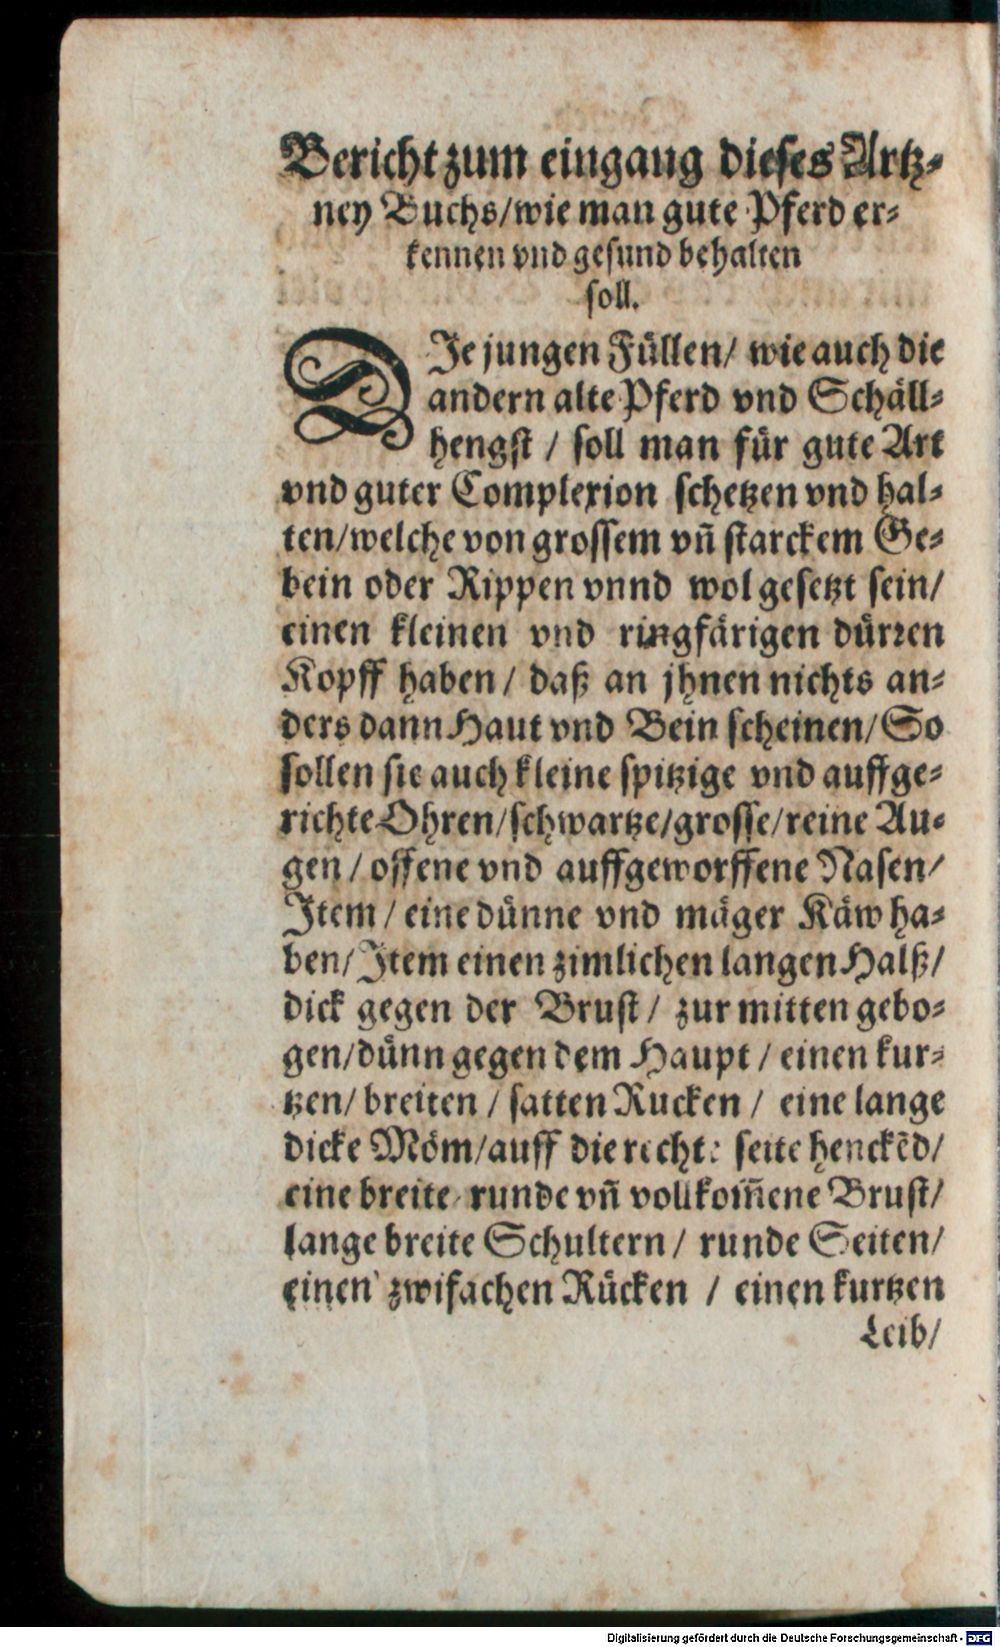 Bericht zum eingang dieses Artz-
ney Buchs/wie man gute Pferd er-
kennen vnd gesund behalten
soll.
DIe jungen Füllen/ wie auch die
andern alte Pferd vnd Schäll-
hengst / soll man für gute Art
vnd guter Complexion schetzen vnd hal-
ten/welche von grossem vñ starckem Ge-
bein oder Rippen vnnd wol gesetzt sein/
einen kleinen vnd ringfärigen dürren
Kopff haben / daß an jhnen nichts an-
ders dann Haut vnd Bein scheinen/ So
sollen sie auch kleine spitzige vnd auffge-
richte Ohren/schwartze/grosse/reine Au-
gen / offene vnd auffgeworffene Nasen/
Item / eine dünne vnd mäger Käw ha-
ben/ Item einen zimlichen langen Halß/
dick gegen der Brust / zur mitten gebo-
gen/dünn gegen dem Haupt / einen kur-
tzen/ breiten / satten Rucken / eine lange
dicke Möm/auff die rechte seite henckẽd/
eine breite runde vñ vollkom̃ene Brust/
lange breite Schultern / runde Seiten/
einen zwifachen Rücken / einen kurtzen
Leib/
Digitalisierung gefördert durch die Deutsche Forschungsgemeinschaft - DFG